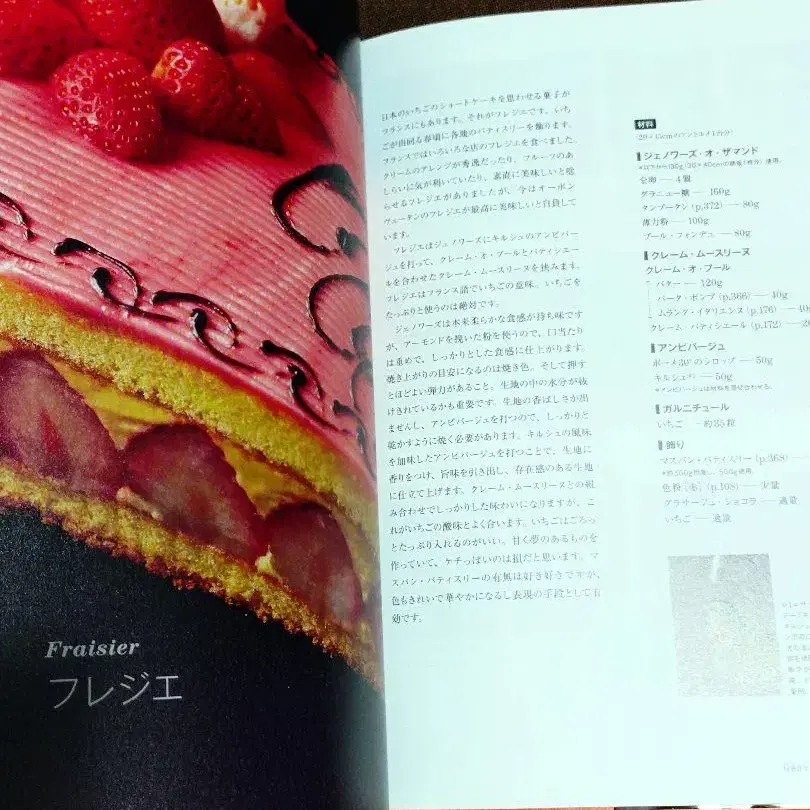 Fraisier
フレジエ
日本のいちごのショートケーキを思わせる菓子が
フランスにもあります。それがフレジエです。いち
ごが出回る春頃に各地のパティスリーを飾ります。
フランスではいろいろな店のフレジエを食べました。
クリームのアレンジが秀逸だったり、フルーツのあ
しらいに気が利いていたり、素直に美味しいと唸
らせるフレジエがありましたが、今はオーボン
ヴュータンのフレジエが最高に美味しいと自負して
います。
フレジエはジェノワーズにキルシュのアンビバー
ジュを打って、クレーム・オ・ブールとパティシエー
ルを合わせたクレーム・ムースリーヌを挟みます。
フレジエはフランス語でいちごの意味。いちごを
たっぷりと使うのは絶対です。
ジェノワーズは本来柔らかな食感が持ち味です
が、アーモンドを挽いた粉を使うので、口当たり
は重めで、しっかりとした食感に仕上がります。
焼き上がりの目安になるのは焼き色。そして押す
とほどよい弾力があること。生地の中の水分が抜
けきれているかも重要です。生地の香ばしさが出
ませんし、アンビバージュを打つので、しっかりと
乾かすように焼く必要があります。キルシュの風味
を加味したアンビバージュを打つことで、生地に
香りをつけ、旨味を引き出し、存在感のある生地
に仕立て上げます。クレーム・ムースリーヌとの組
み合わせでしっかりした味わいになりますが、こ
れがいちごの酸味とよく合います。いちごはごろっ
とたっぷり入れるのがいい。甘く夢のあるものを
作っていて、ケチっぽいのは損だと思います。マ
スパン・パティスリーの有無は好き好きですが、
色もきれいで華やかになるし表現の手段として有
効です。
材料
ジェノワーズ・オ・ザマンド
全卵 — 4個
グラニュー糖 — 160g
タンプータン (p.372) — 80g
薄力粉 — 100g
ブール・フォンデュ — 80g
クレーム・ムースリーヌ
クレーム・オ・ブール
バター — 120g
パータ・ボンブ (p.366) — 40g
ムラング・イタリエンヌ (p.176) —
クレーム・パティシエール (p.172) —
アンビバージュ
ボーメ30°のシロップ — 50g
キルシュ — 50g
※アンビバージュは材料を混ぜ合わせる。
ガルニチュール
いちご — 約35粒
飾り
マスパン・パティスリー (p.368) —
色粉 [赤] (p.108) — 少量
グラサージュ・ショコラ — 適量
いちご — 適量